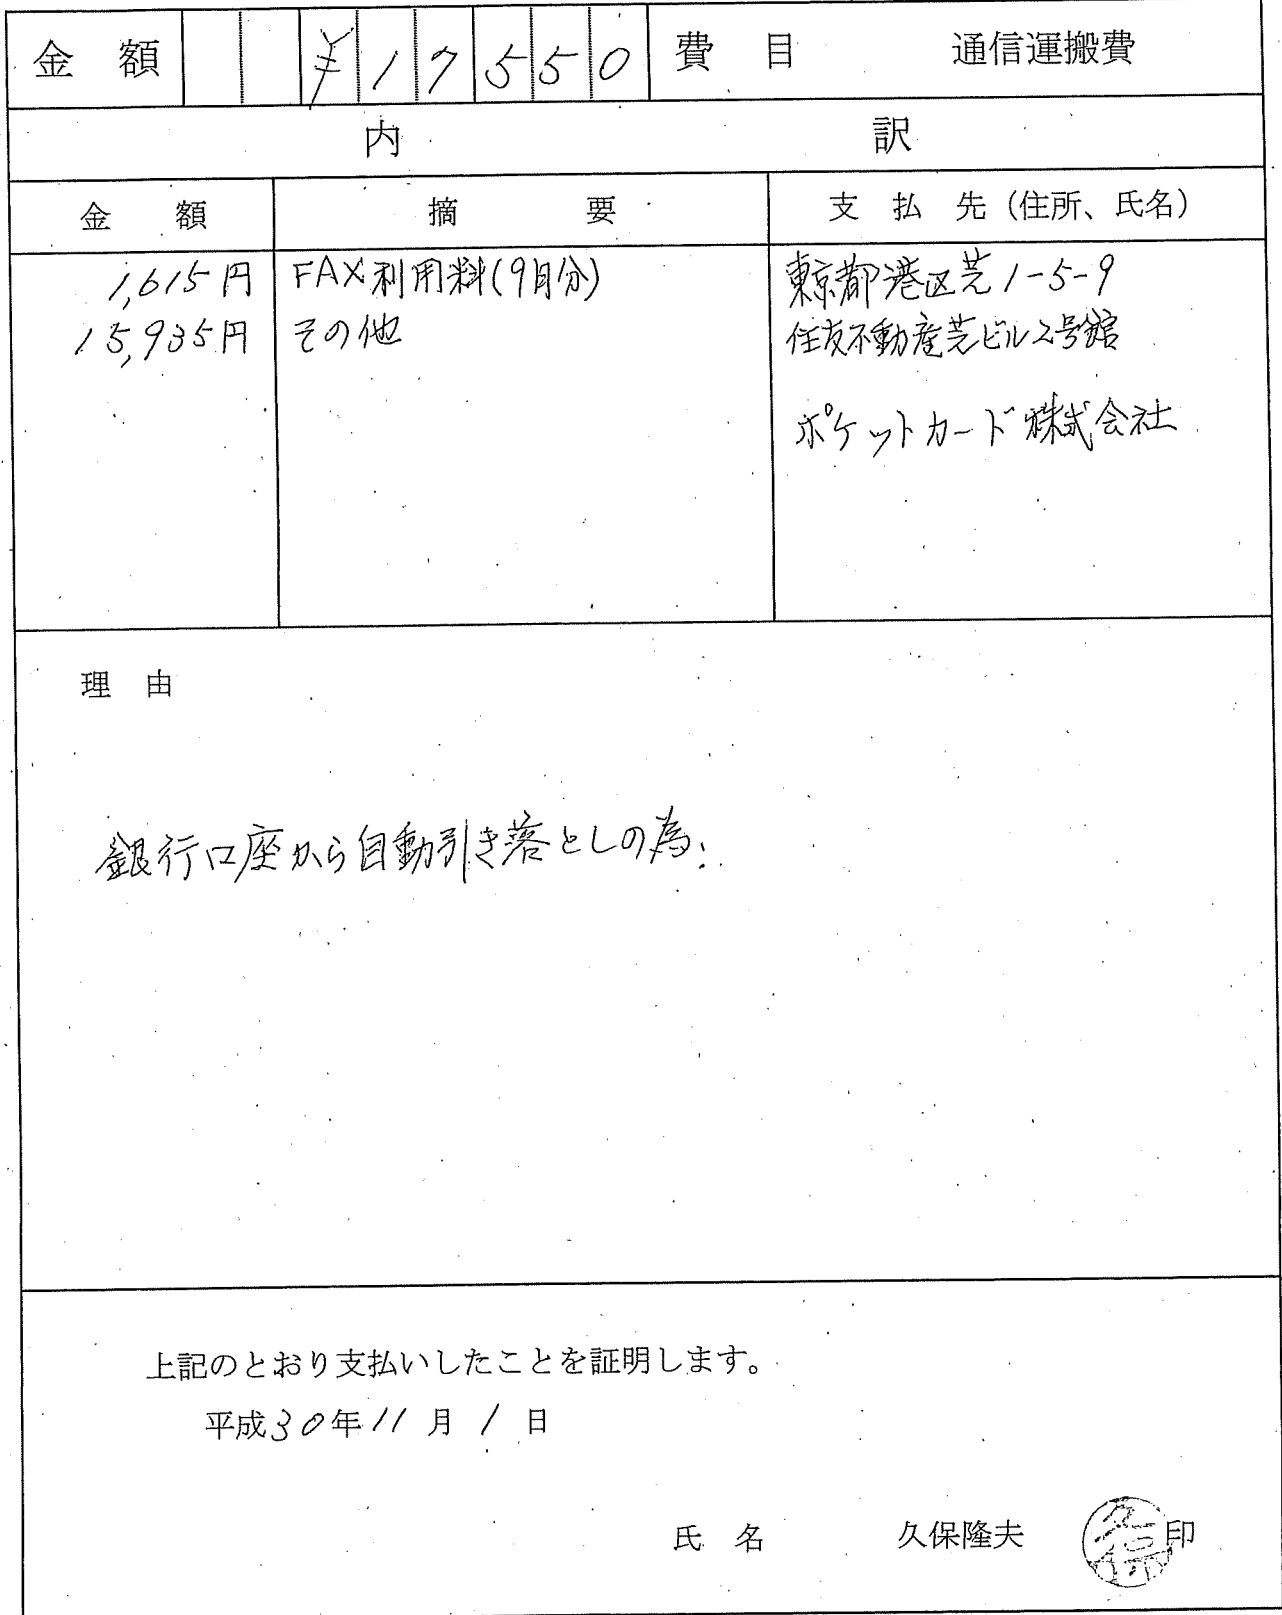 金 額 ¥17550 費 目 通信運搬費
内 訳
金 額 摘 要 支 払 先（住所、氏名）
1,615円 FAX利用料(9月分) 東京都港区芝1-5-9
15,935円 その他 住友不動産芝ビル2号館
ポケットカード株式会社
理 由
銀行口座から自動引き落としの為.
上記のとおり支払いしたことを証明します。
平成30年11月1日
氏 名 久保隆夫 久保 印